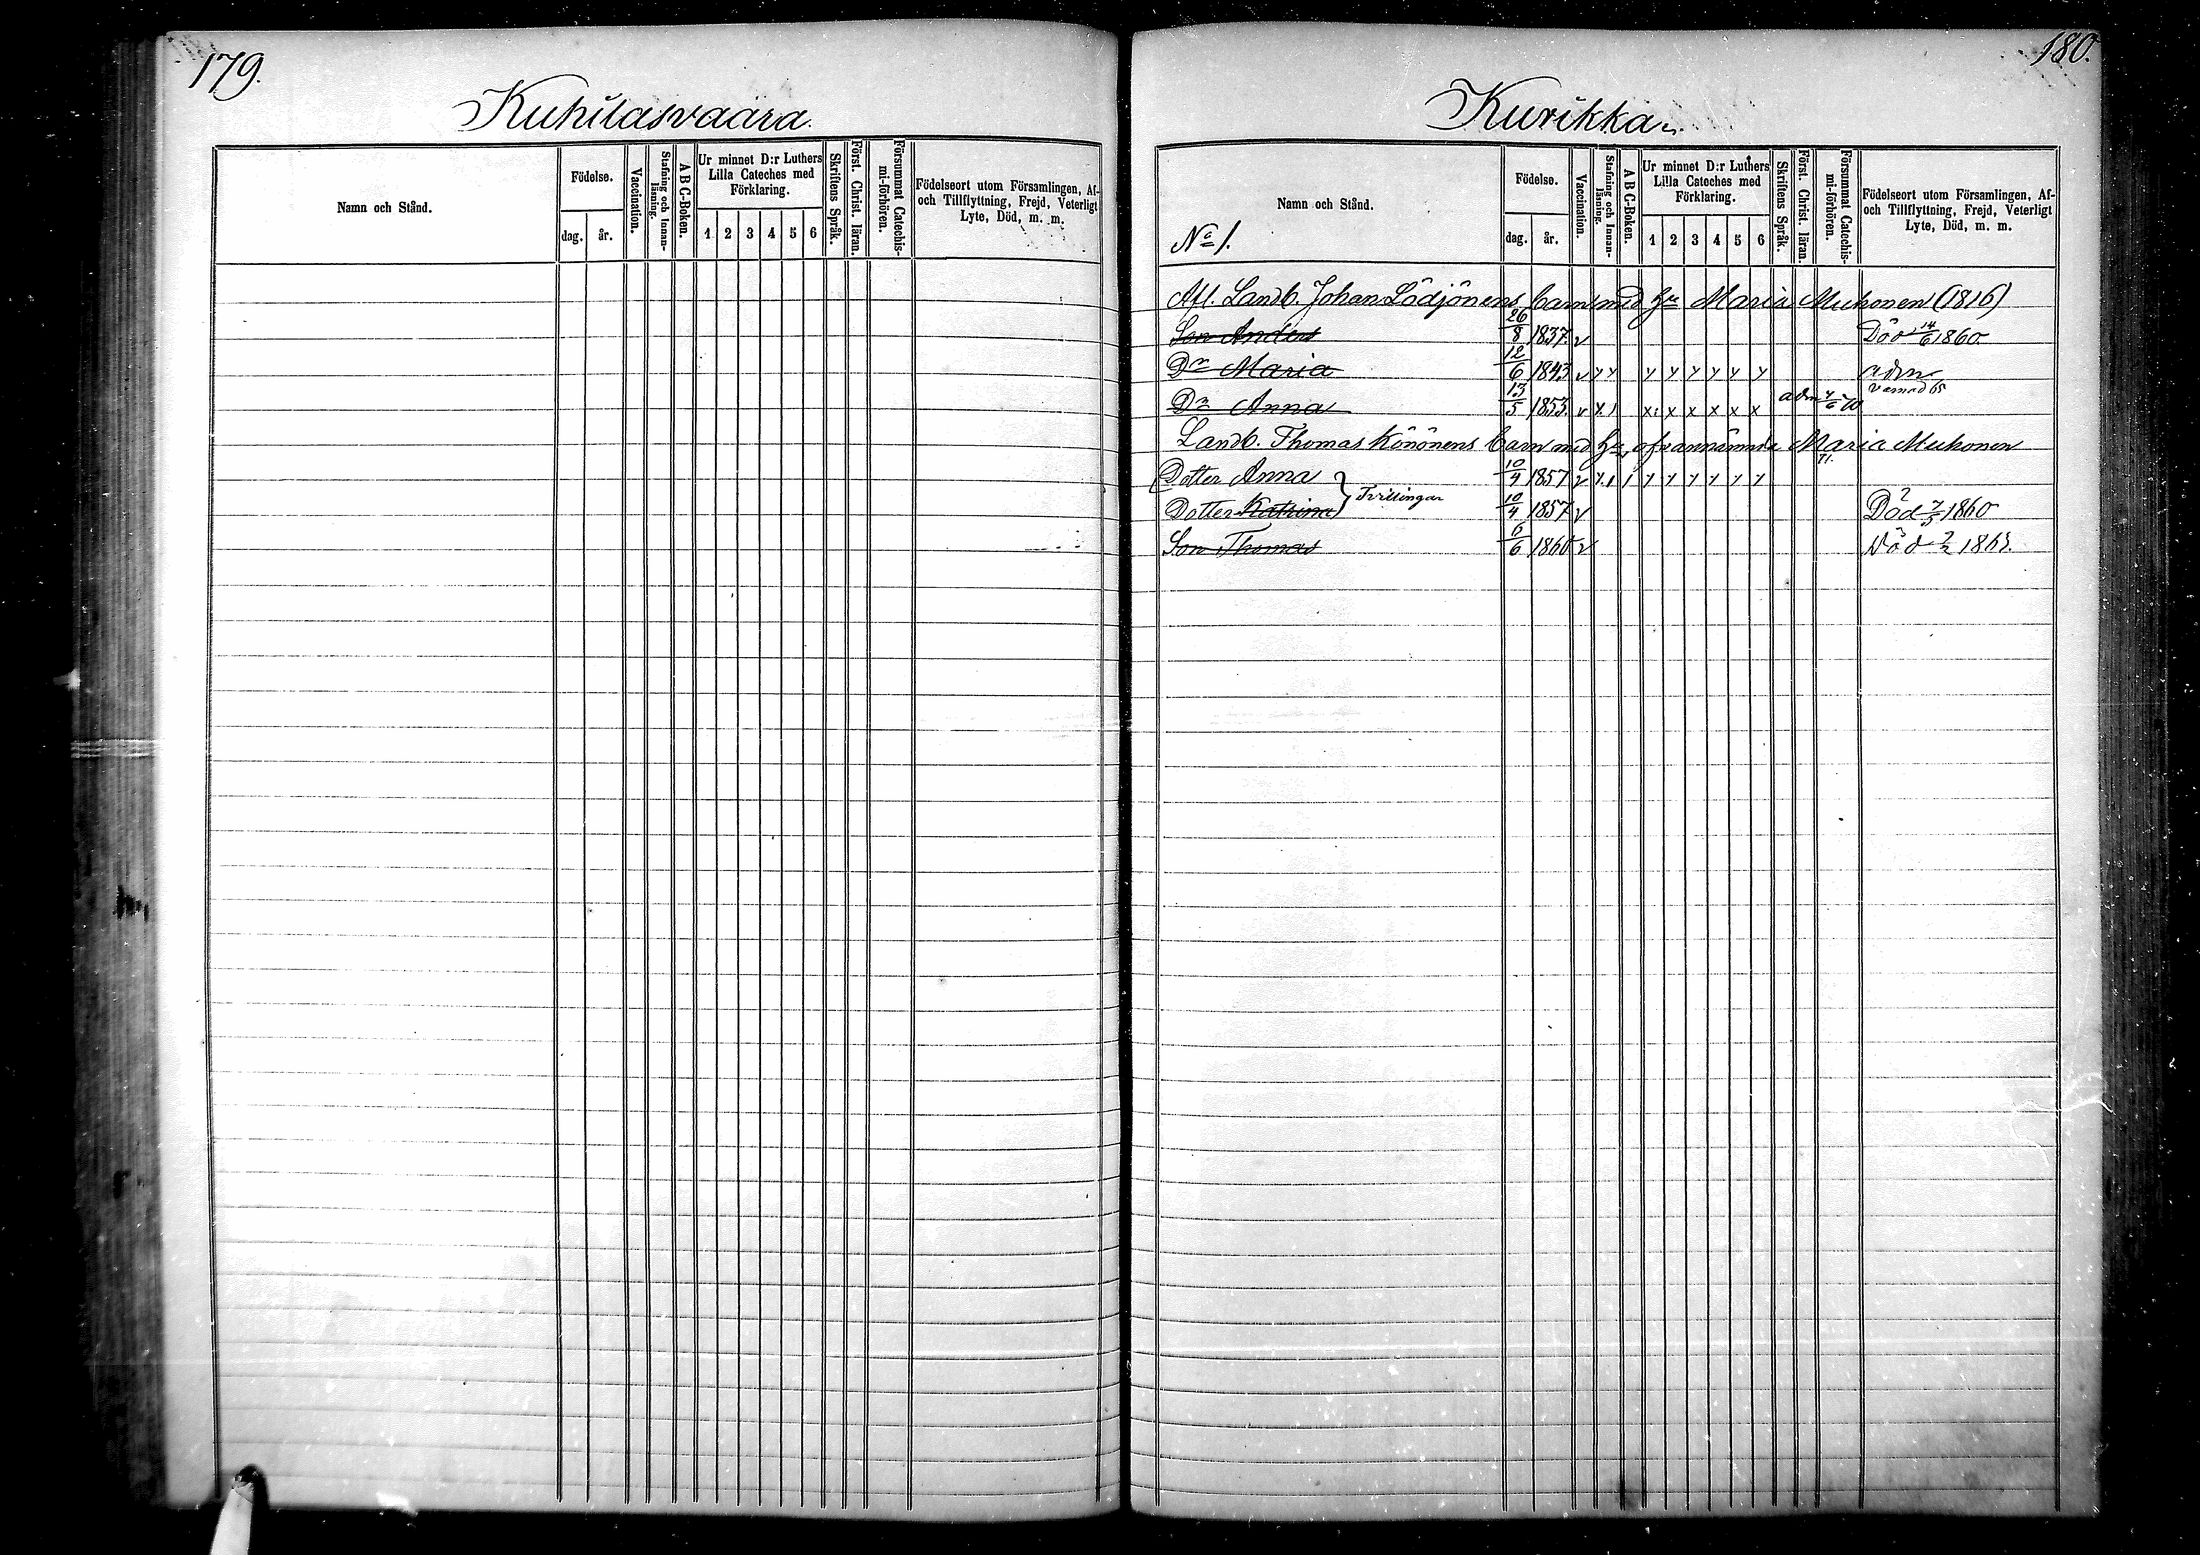 179.
Kuhilasvaara.
Namn och Stånd.
Födelse.
dag. år.
Vaccination.
Stafning och Innanläsning.
A B C-Boken.
Ur minnet D:r Luthers Lilla Cateches med Förklaring.
1 2 3 4 5 6
Skriftens Språk.
Först. Christ. läran.
Försummat Catechismi-förhören.
Födelseort utom Församlingen, Af- och Tillflyttning, Frejd, Veterligt Lyte, Död, m. m.
180.
Kurikka.
Namn och Stånd.
No 1.
Födelse.
dag. år.
Vaccination.
Stafning och Innanläsning.
A B C-Boken.
Ur minnet D:r Luthers Lilla Cateches med Förklaring.
1 2 3 4 5 6
Skriftens Språk.
Först. Christ. läran.
Försummat Catechismi-förhören.
Födelseort utom Församlingen, Af- och Tillflyttning, Frejd, Veterligt Lyte, Död, m. m.
Afl. Landb. Johan Lödjönens barn med Hu Maria Muhonen (1816)
Son Anders 26/8 1837. v Död 14/6 1860.
Dr Maria 12/6 1843 v x x x x x x x x adm
Dr Anna 13/5 1853. v x x x x x x x adm
Landb. Thomas Könönens barn med Hu ofvannämnde Maria Muhonen
Dotter Anna 10/4 1857 v x x x x x x 71.
Tvillingar
Dotter Katrina 10/4 1857 v Död 7/5 1860
Son Thomas 6/6 1860 v Död